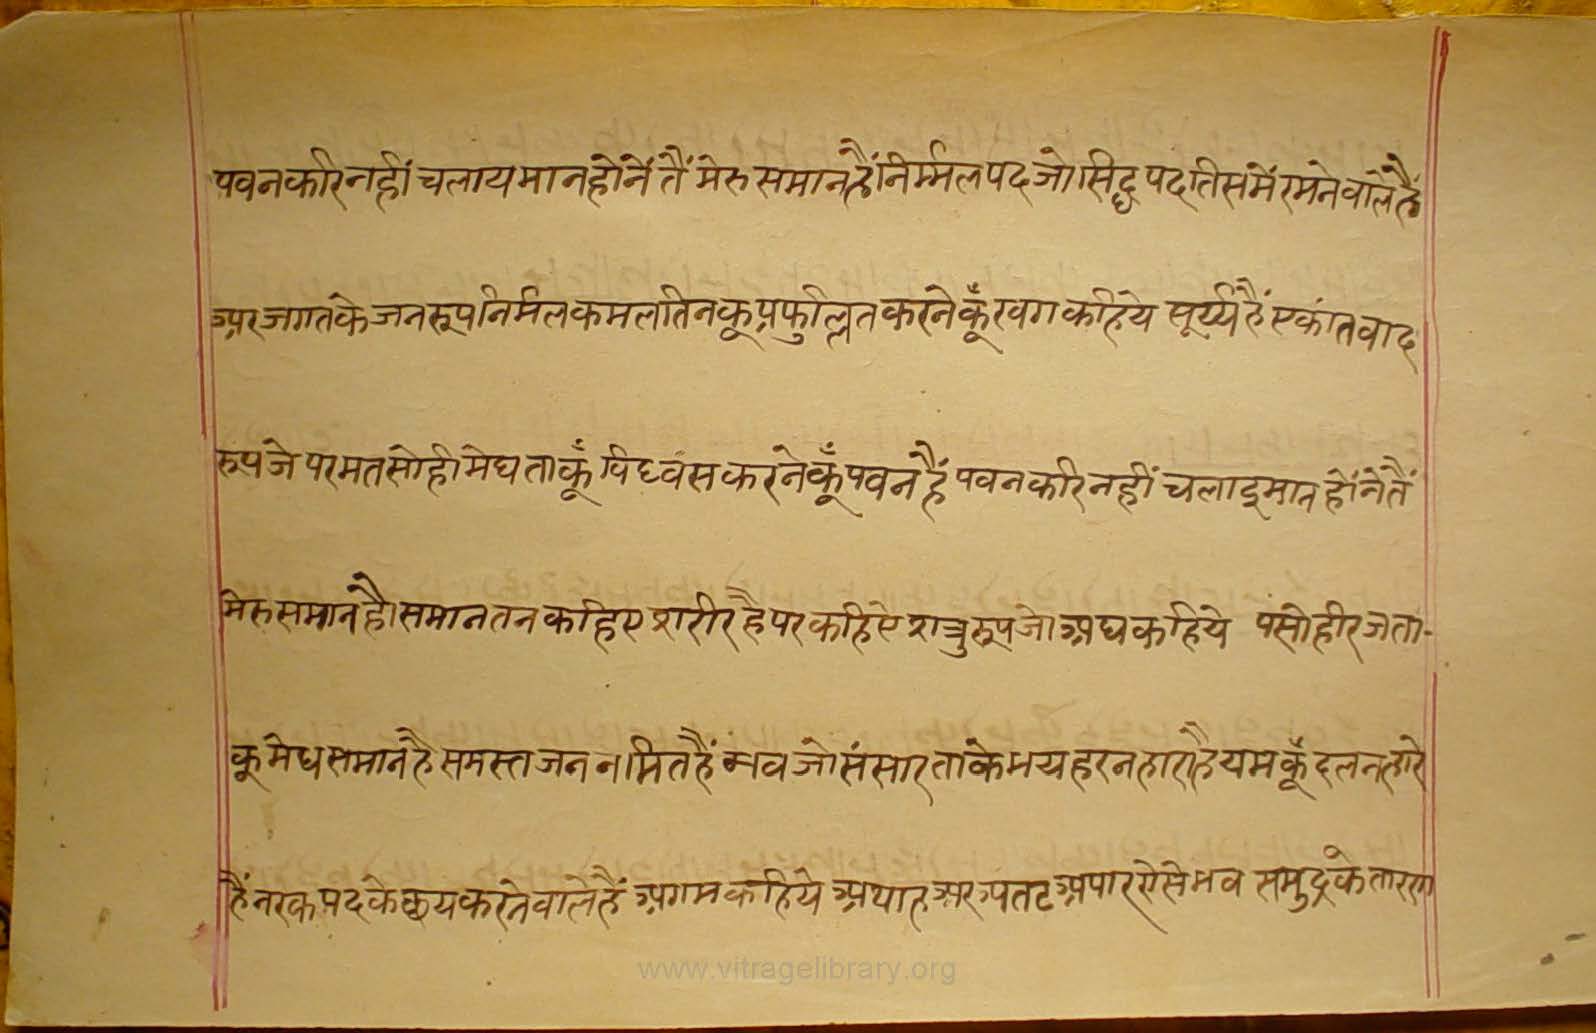 पवनकरिनहीं चलायमानहोनें तैं मेरु समानहैं।निर्म्मल पद जो सिद्ध पद तिसमें रमने वाले हैं
अर जगतके जनरूप निर्मल कमल तिनकू प्रफुल्लित करनेकूँ खग कहिये सूर्य्य हैं एकांतवाद
रूप जे परमत सोही मेघ ताकूँ विध्वंस करनेकूँ पवन हैं पवनकरि नहीं चलाइमान होंनेतैं
मेरु समान है।समान तन कहिए शरीर है पर कहिऐ शत्रुरूप जो अघ कहिये पं सोही रज ता-
कू मेघ समान है समस्त जन नमित हैं भव जो संसार ताके भय हरनहारा है यमकूँ दलनहारे
हैं नरक पद के क्षय करने वाले हैं अगम कहिये अथाह अर अतट अपार ऐसे भव समुद्रके तारण
www.vitragelibrary.org